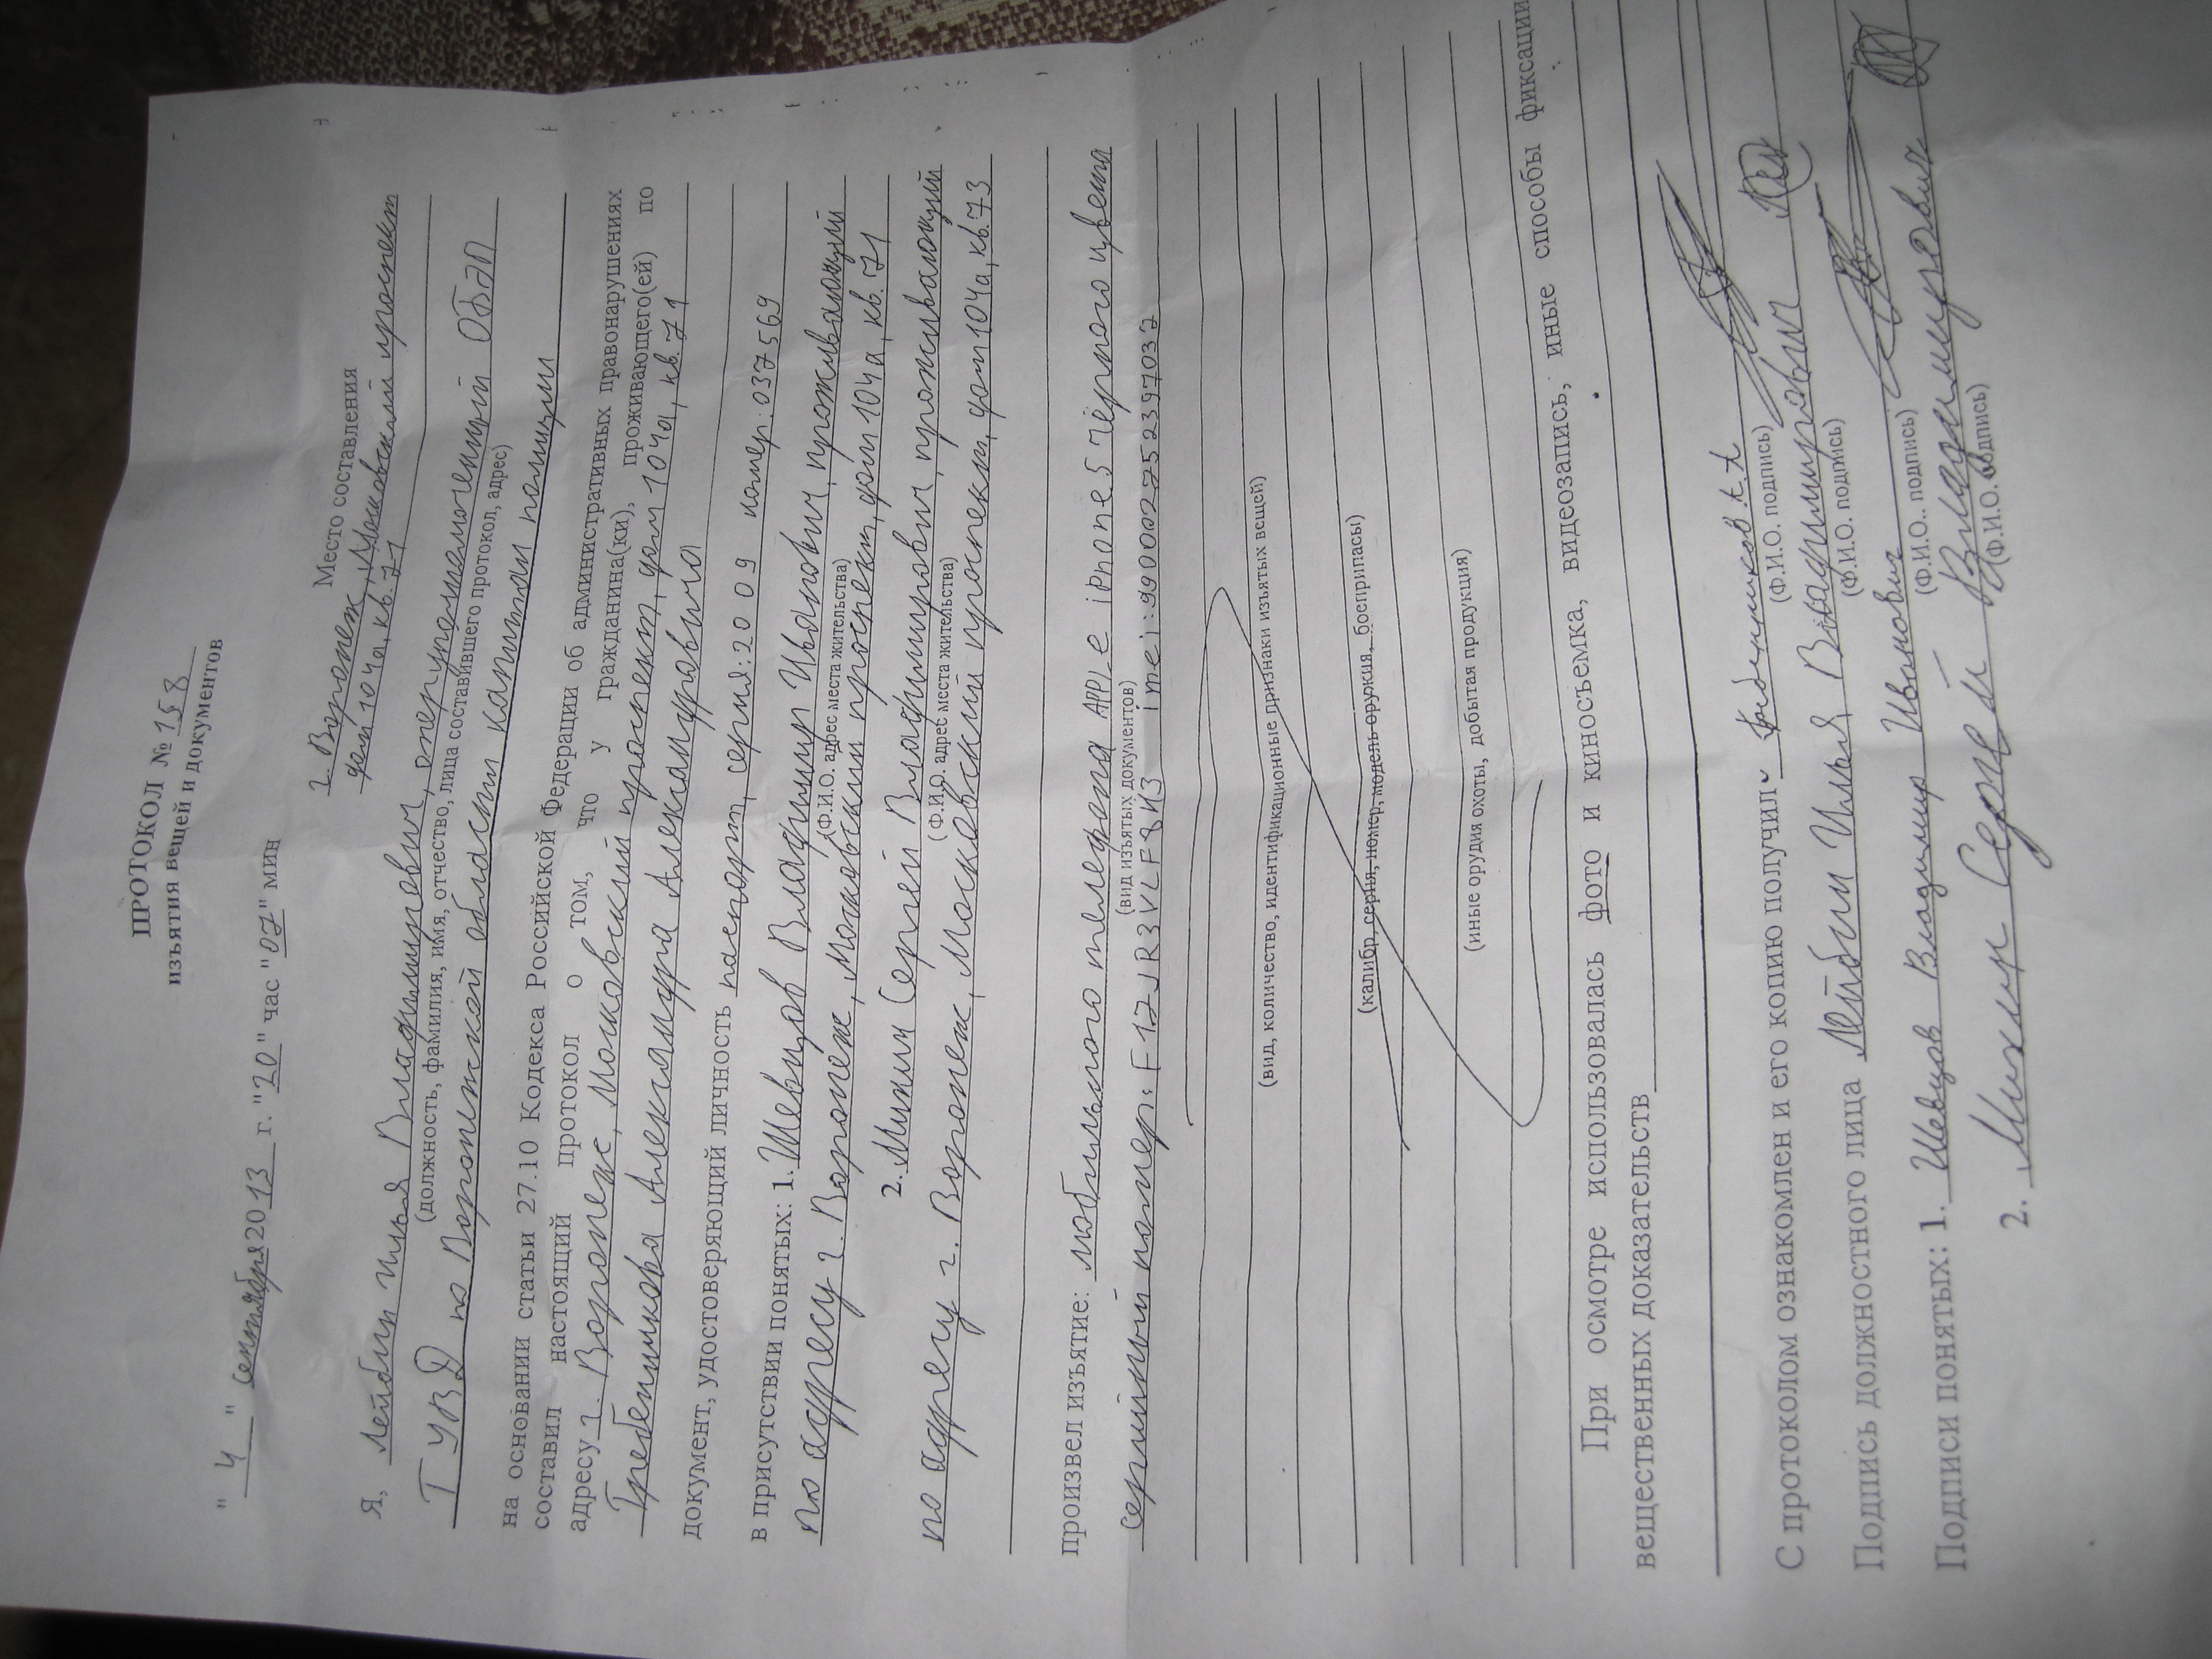 ПРОТОКОЛ № 158
изъятия вещей и документов
" 4 " сентября 2013 г. "20" час "07" мин
Место составления
г. Воронеж, Московский проспект
дом 104а, кв. 71
Я, Лейбин Илья Владимирович, оперуполномоченный ОБЭП
(должность, фамилия, имя, отчество, лица составившего протокол, адрес)
ГУВД по Воронежской области капитан полиции
на основании статьи 27.10 Кодекса Российской Федерации об административных правонарушениях
составил настоящий протокол о том, что у гражданина(ки), проживающего(ей) по
адресу г. Воронеж, Московский проспект, дом 104а, кв. 71
Гребенникова Александра Александровича
документ, удостоверяющий личность паспорт, серия: 2009 номер: 037569
в присутствии понятых: 1. Шевцов Владимир Иванович, проживающий
(Ф.И.О. адрес места жительства)
по адресу г. Воронеж, Московский проспект, дом 104а, кв. 71
2. Михин Сергей Владимирович, проживающий
(Ф.И.О. адрес места жительства)
по адресу г. Воронеж, Московский проспект, дом 104а, кв. 73
произвел изъятие: мобильного телефона APPle iPhone 5 чёрного цвета
(вид изъятых документов)
серийный номер: F17JR3VLF8H3 imei: 990002752397032
(вид, количество, идентификационные признаки изъятых вещей)
(калибр, серия, номер, модель оружия, боеприпасы)
(иные орудия охоты, добытая продукция)
При осмотре использовалась фото и киносъемка, видеозапись, иные способы фиксации
вещественных доказательств
С протоколом ознакомлен и его копию получил Гребенников А.А.
(Ф.И.О. подпись)
Подпись должностного лица Лейбин Илья Владимирович
(Ф.И.О. подпись)
Подписи понятых: 1. Шевцов Владимир Иванович
(Ф.И.О.. подпись)
2. Михин Сергей Владимирович
(Ф.И.О. подпись)